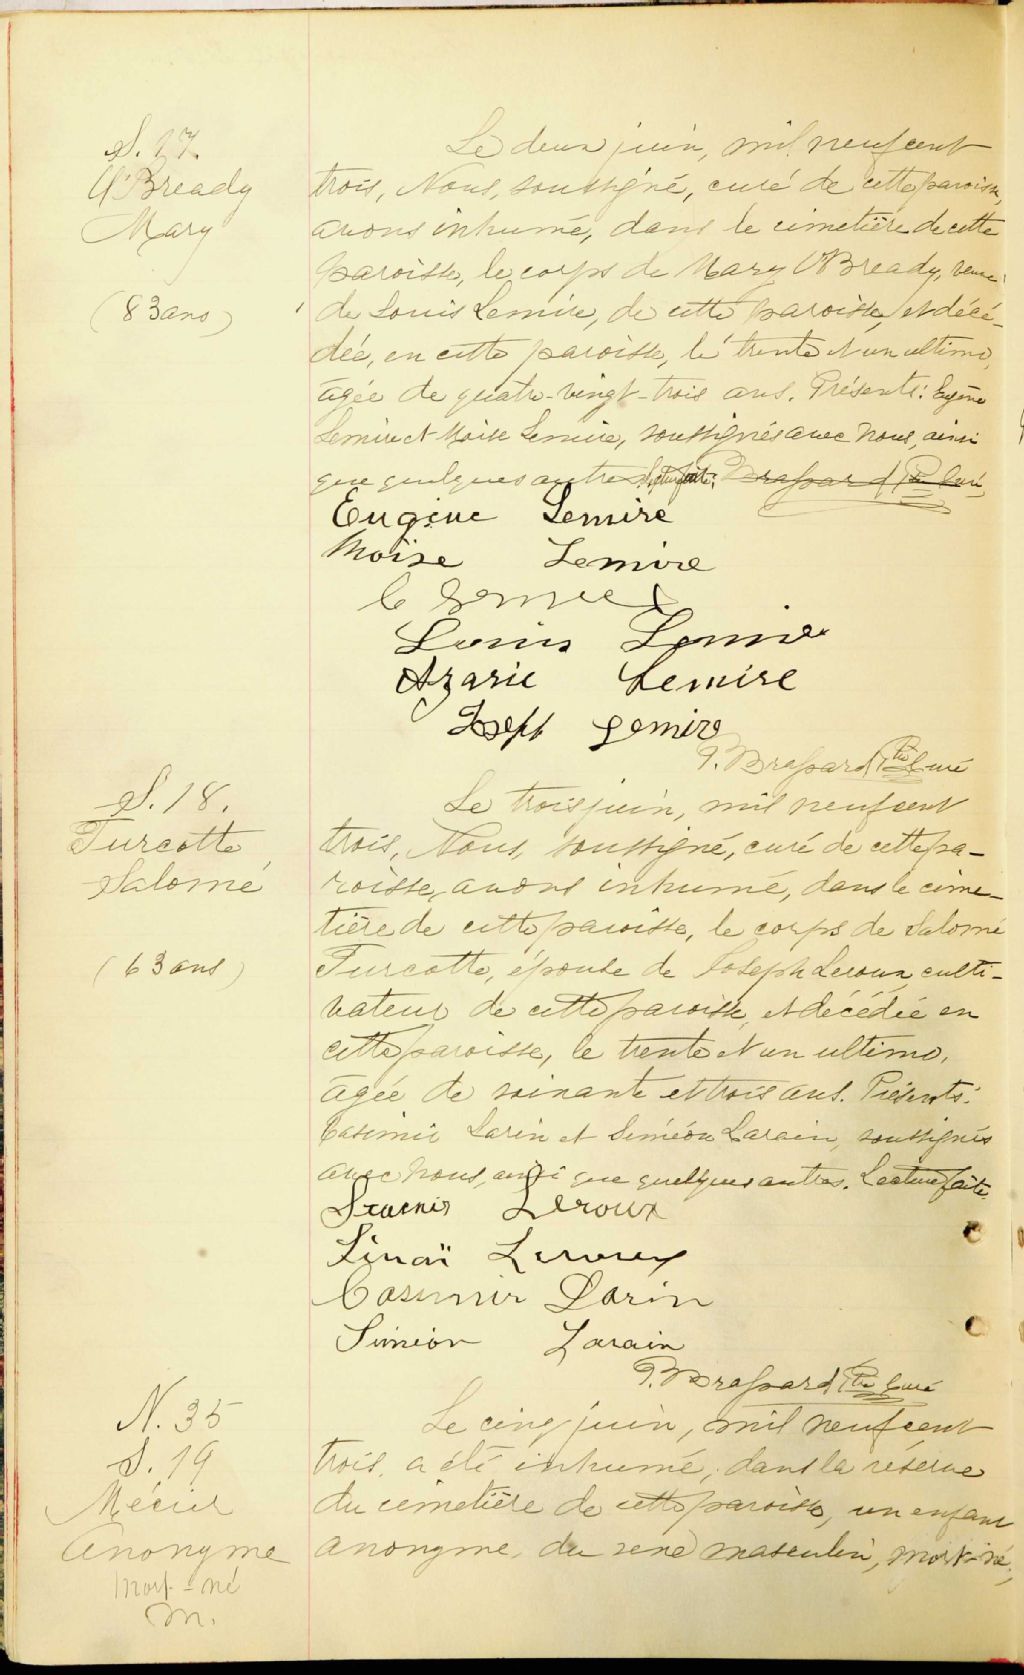 S. 17.
O'Bready
Mary
(83 ans)
Le deux juin, mil neuf cent
trois, Nous, soussigné, curé de cette paroisse,
avons inhumé, dans le cimetière de cette
paroisse, le corps de Mary O'Bready, veuve
de Louis Lemire, de cette paroisse, et décé-
dée, en cette paroisse, le trente et un ultimo,
âgée de quatre-vingt-trois ans. Présents: Eugène
Lemire et Moïse Lemire, soussignés avec nous, ainsi
que quelques autres. Lecture faite. Brassard Ptre Curé,
Eugène Lemire
Moïse Lemire
Louis Lemire
Azarie Lemire
Joseph Lemire
T. Brassard Ptre Curé
S. 18.
Turcotte
Salomé
(63 ans)
Le trois juin, mil neuf cent
trois, Nous, soussigné, curé de cette pa-
roisse, avons inhumé, dans le cime-
tière de cette paroisse, le corps de Salomé
Turcotte, épouse de Joseph Leroux, culti-
vateur de cette paroisse, et décédée en
cette paroisse, le trente et un ultimo,
âgée de soixante et trois ans. Présents:
Casimir Larin et Siméon Larain, soussignés
avec nous, ainsi que quelques autres. Lecture faite.
Leroux
Sinaï Leroux
Casimir Larin
Siméon Larain
T. Brassard Ptre Curé
N. 35
S. 19
Mécier
Anonyme
Mort-né
M.
Le cinq juin, mil neuf cent
trois, a été inhumé, dans la réserve
du cimetière de cette paroisse, un enfant
anonyme, du sexe masculin, mort-né,